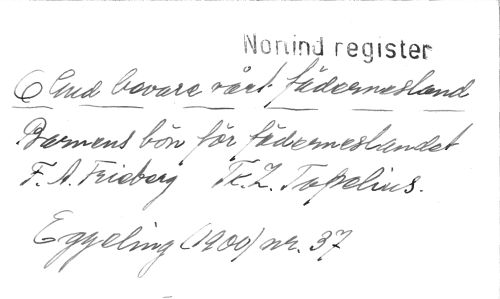 Nonind register
O Gud bevare vårt fädernesland
Barnens bön för fäderneslandet
F. A. Frieberg T: Z. Topelius.
Eggeling (1900) nr. 37